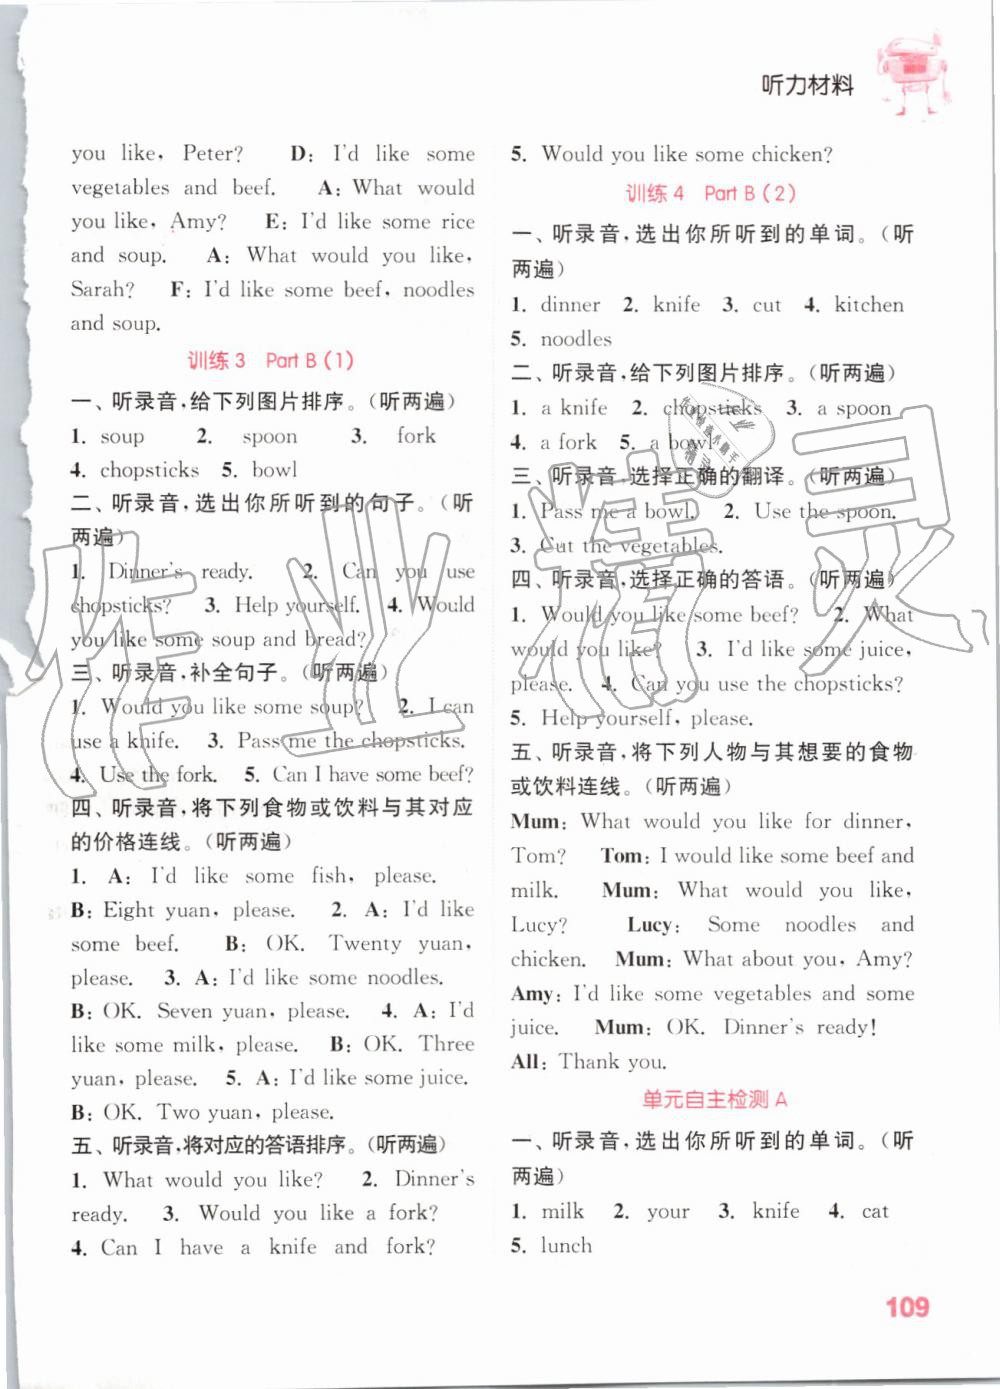 听力材料
you like, Peter? D: I'd like some
vegetables and beef. A: What would
you like, Amy? E: I'd like some rice
and soup. A: What would you like,
Sarah? F: I'd like some beef, noodles
and soup.
训练3 Part B(1)
一、听录音,给下列图片排序。(听两遍)
1. soup 2. spoon 3. fork
4. chopsticks 5. bowl
二、听录音,选出你所听到的句子。(听
两遍)
1. Dinner's ready. 2. Can you use
chopsticks? 3. Help yourself. 4. Would
you like some soup and bread?
三、听录音,补全句子。(听两遍)
1. Would you like some soup? 2. I can
use a knife. 3. Pass me the chopsticks.
4. Use the fork. 5. Can I have some beef?
四、听录音,将下列食物或饮料与其对应
的价格连线。(听两遍)
1. A: I'd like some fish, please.
B: Eight yuan, please. 2. A: I'd like
some beef. B: OK. Twenty yuan,
please. 3. A: I'd like some noodles.
B: OK. Seven yuan, please. 4. A: I'd
like some milk, please. B: OK. Three
yuan, please. 5. A: I'd like some juice.
B: OK. Two yuan, please.
五、听录音,将对应的答语排序。(听两遍)
1. What would you like? 2. Dinner's
ready. 3. Would you like a fork?
4. Can I have a knife and fork?
5. Would you like some chicken?
训练4 Part B(2)
一、听录音,选出你所听到的单词。(听
两遍)
1. dinner 2. knife 3. cut 4. kitchen
5. noodles
二、听录音,给下列图片排序。(听两遍)
1. a knife 2. chopsticks 3. a spoon
4. a fork 5. a bowl
三、听录音,选择正确的翻译。(听两遍)
1. Pass me a bowl. 2. Use the spoon.
3. Cut the vegetables.
四、听录音,选择正确的答语。(听两遍)
1. Would you like some beef? 2. What
would you like? 3. I'd like some juice,
please. 4. Can you use the chopsticks?
5. Help yourself, please.
五、听录音,将下列人物与其想要的食物
或饮料连线。(听两遍)
Mum: What would you like for dinner,
Tom? Tom: I would like some beef and
milk. Mum: What would you like,
Lucy? Lucy: Some noodles and
chicken. Mum: What about you, Amy?
Amy: I'd like some vegetables and some
juice. Mum: OK. Dinner's ready!
All: Thank you.
单元自主检测A
一、听录音,选出你所听到的单词。(听
两遍)
1. milk 2. your 3. knife 4. cat
5. lunch
109
作业精灵